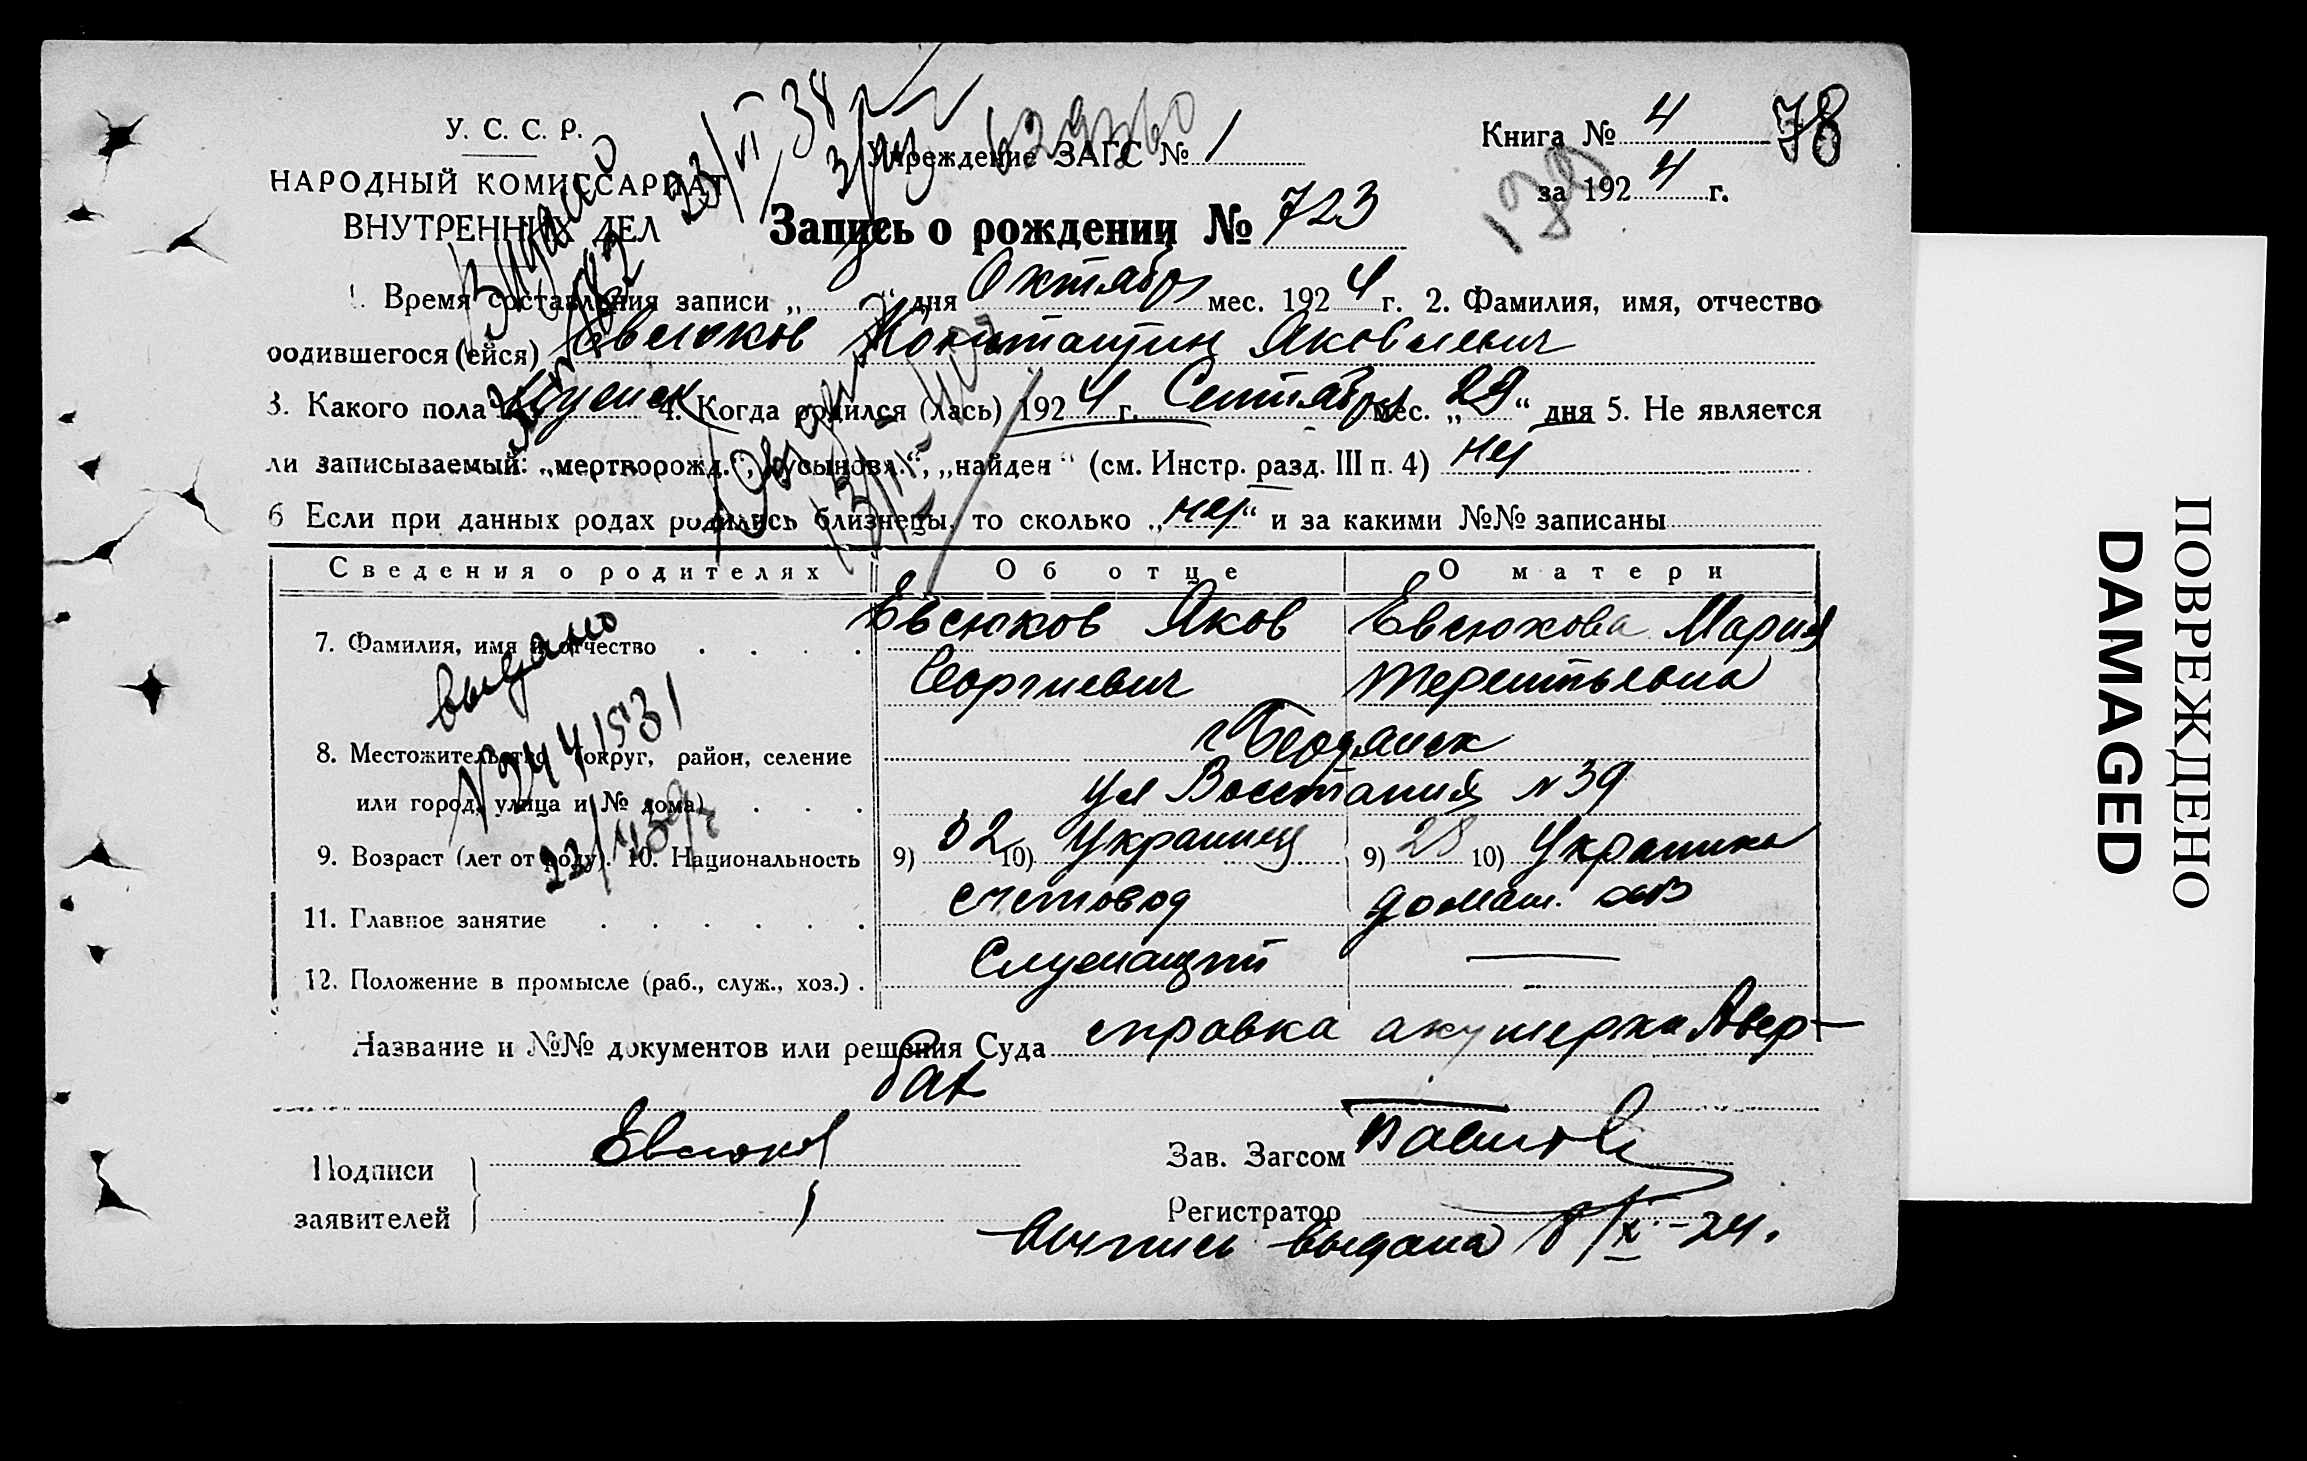 У. С. С. Р.
НАРОДНЫЙ КОМИССАРИАТ
ВНУТРЕННИХ ДЕЛ
Учреждение ЗАГС № 1
Книга № 4 78
за 1924 г.
Запись о рождении № 723
1. Время составления записи „ “ дня Октябр мес. 1924 г. 2. Фамилия, имя, отчество
родившегося (ейся) Евсюков Константин Яковлевич
3. Какого пола Мужск 4. Когда родился (лась) 1924 г. Сентября мес. „29“ дня 5. Не является
ли записываемый: „мертворожд.“, „усыновл.“, „найден“ (см. Инстр. разд. III п. 4) нет
6 Если при данных родах родились близнецы, то сколько „нет“ и за какими №№ записаны
Сведения о родителях Об отце О матери
7. Фамилия, имя и отчество . . . . Евсюков Яков Евсюкова Мария
Георгиевич Терентьевна
8. Местожительство (округ, район, селение г Бердянск
или город, улица и № дома) . . . ул Восстания № 39
9. Возраст (лет от роду). 10. Национальность 9) 32 10) Украинец 9) 28 10) Украинка
11. Главное занятие . . . . . . счетовод домаш. хоз
12. Положение в промысле (раб., служ., хоз.) . Служащий —
Название и №№ документов или решения Суда справка акушерки Авер-
бах
Подписи
заявителей
Евсюков
Зав. Загсом
Регистратор
Выпись выдана 8/X-24.
Выдано
23/VI 38
выдано
ПОВРЕЖДЕНО
DAMAGED